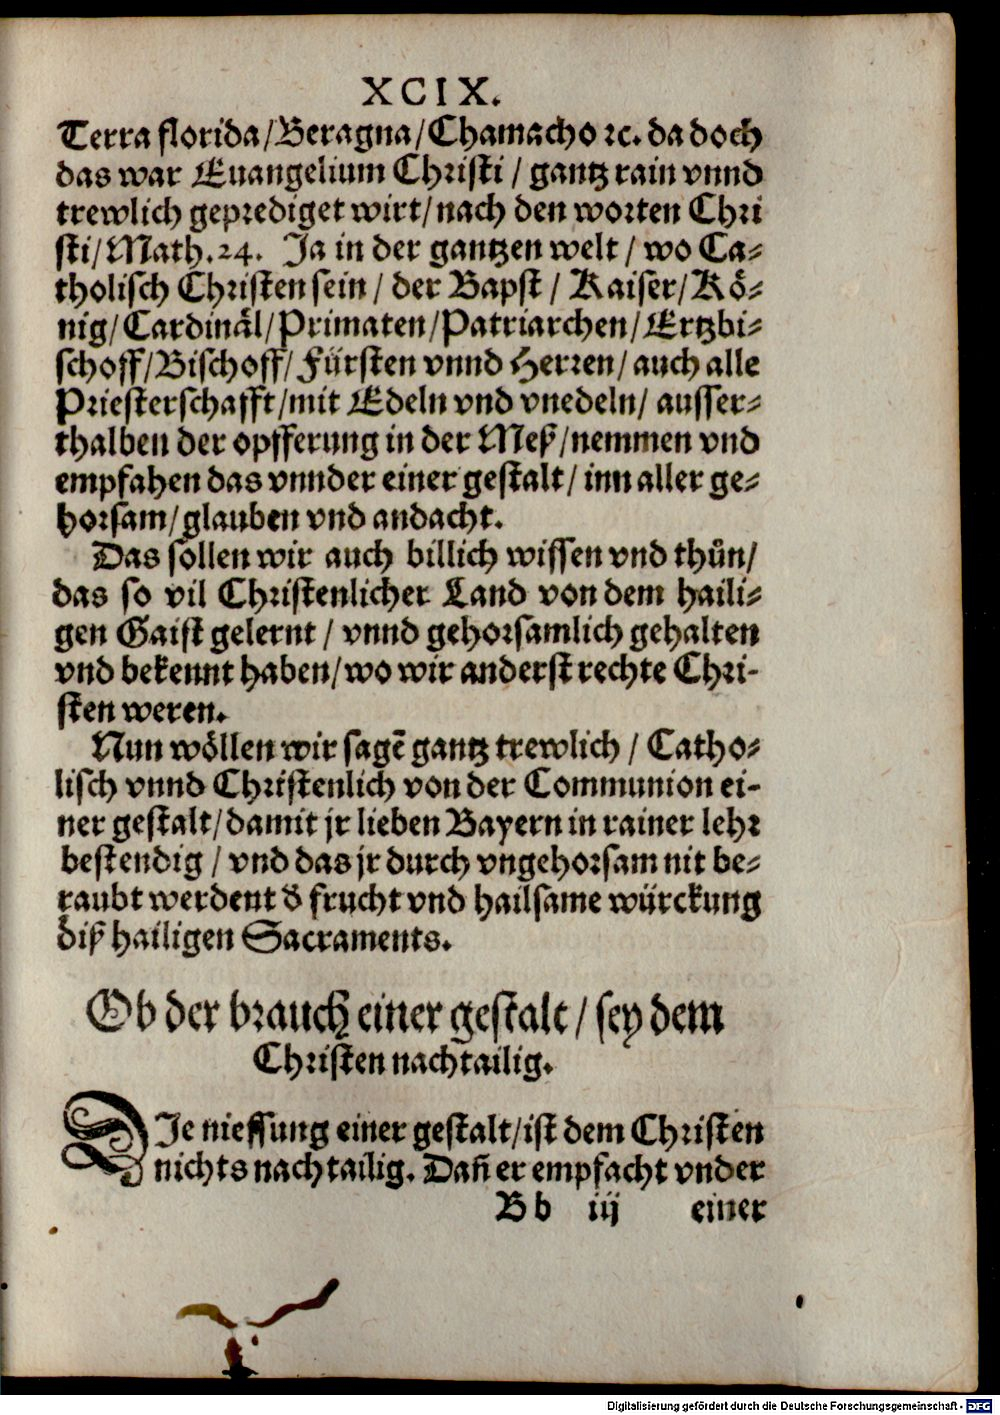 XCIX.
Terra florida/Beragna/Chamacho ꝛc. da doch
das war Euangelium Christi / gantz rain vnnd
trewlich geprediget wirt/nach den worten Chri
sti/Math.24. Ja in der gantzen welt / wo Ca-
tholisch Christen sein / der Bapst / Kaiser/Kö-
nig/Cardinäl/Primaten/Patriarchen/Ertzbi-
schoff/Bischoff/Fürsten vnnd Herren/auch alle
Priesterschafft/mit Edeln vnd vnedeln/ ausser-
thalben der opfferung in der Meß/nemmen vnd
empfahen das vnnder einer gestalt/ inn aller ge-
horsam/glauben vnd andacht.
Das sollen wir auch billich wissen vnd thůn/
das so vil Christenlicher Land von dem haili-
gen Gaist gelernt / vnnd gehorsamlich gehalten
vnd bekennt haben/wo wir anderst rechte Chri-
sten weren.
Nun wöllen wir sagē gantz trewlich / Catho-
lisch vnnd Christenlich von der Communion ei-
ner gestalt/damit jr lieben Bayern in rainer lehr
bestendig / vnd das jr durch vngehorsam nit be-
raubt werdent d̕ frucht vnd hailsame würckung
diß hailigen Sacraments.
Ob der brauch einer gestalt / sey dem
Christen nachtailig.
DIe niessung einer gestalt/ist dem Christen
nichts nachtailig. Dañ er empfacht vnder
B b iij einer
Digitalisierung gefördert durch die Deutsche Forschungsgemeinschaft - DFG